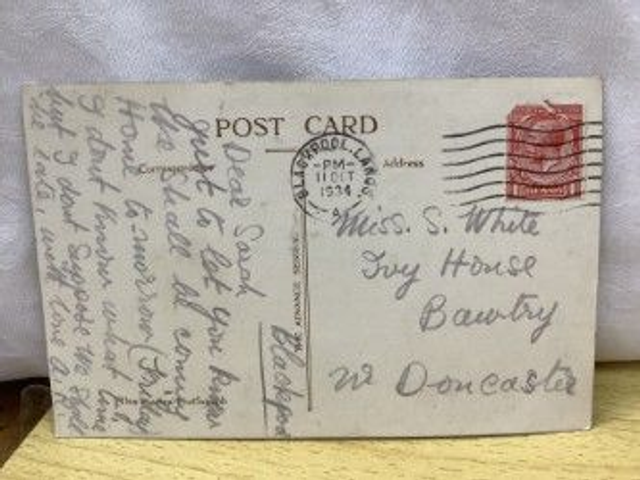 POST CARD
Correspondence
Address
BLACKPOOL. LANCS
-PM-
11 OCT
1934
A
Blackpool
Dear Sarah
just to let you know
We shall be coming
Home to-morrow (Friday)
I dont know what time
but I dont suppose we shall
be late, with love A.R.
Miss. S. White
Ivy House
Bawtry
Nr Doncaster